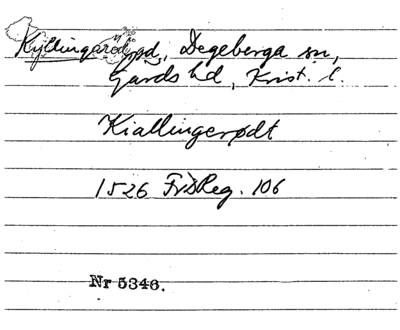 Kyllingaröd, Degeberga sn,
Gärds hd, Krist. l.
Kiallingerødt
1526 FrIsReg. 106
Nr 5346.